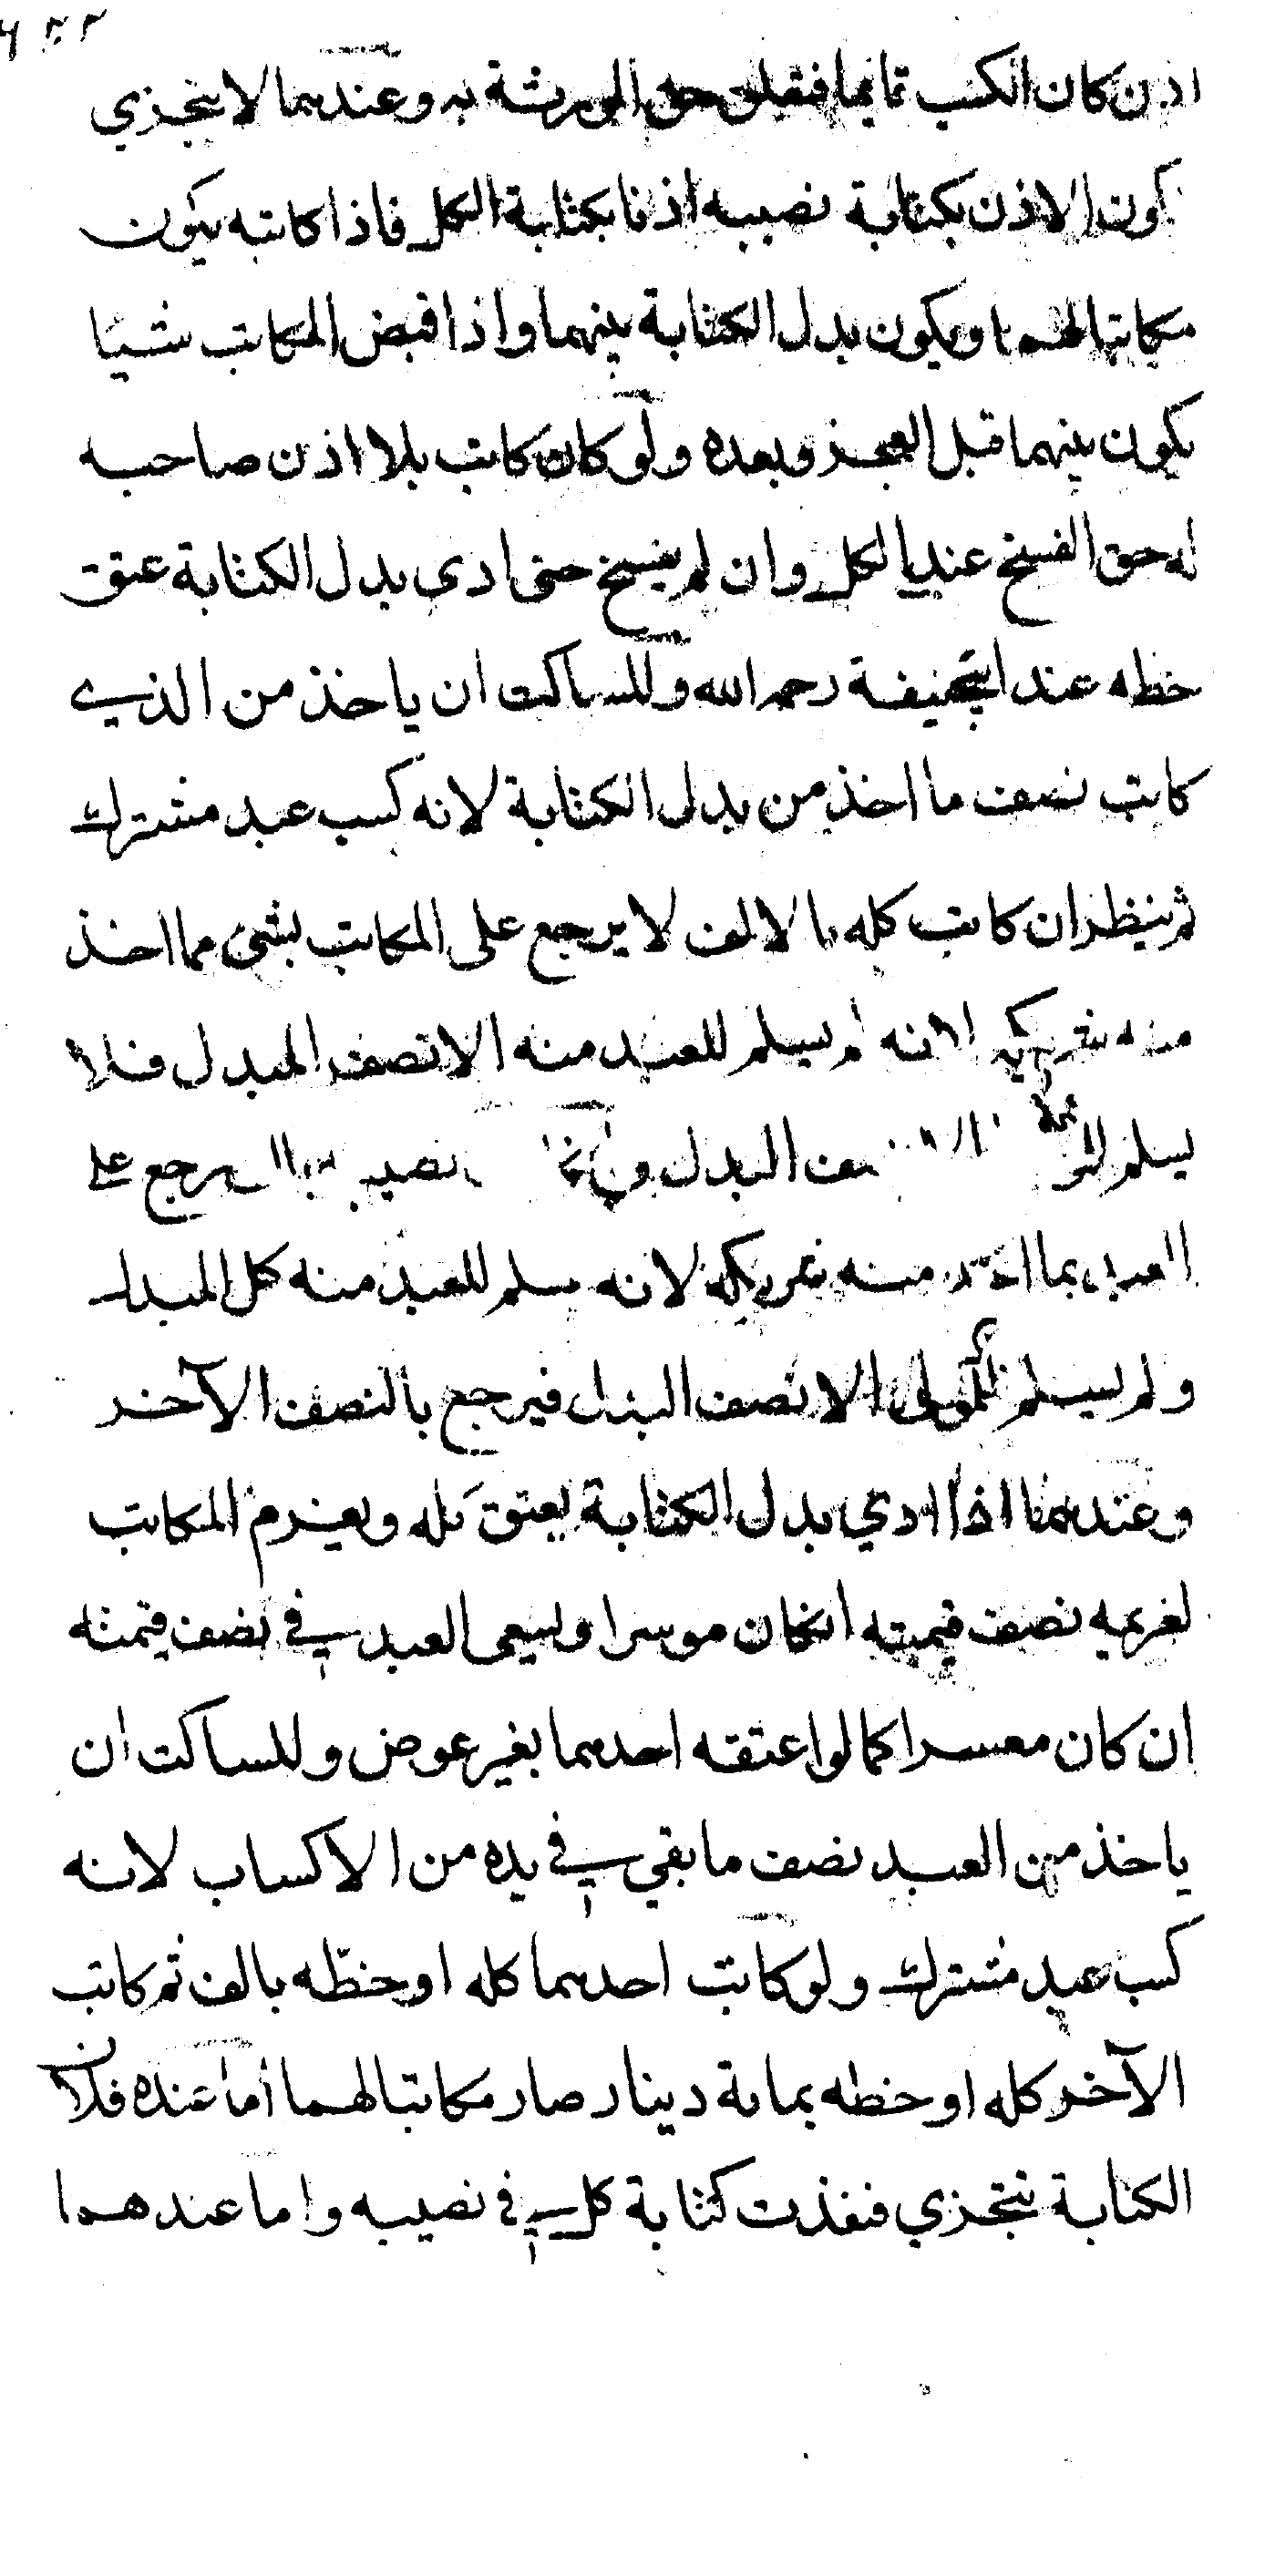 اذن كان الكسب قايما فتعلق حق الورثة به وعندهما لا يتجزي
كون الاذن بكتابة نصيبه اذنا بكتابة الكل فاذا كاتبه يكون
مكاتبا لهما ويكون بدل الكتابة بينهما واذا قبض المكاتب شيئا
يكون بينهما قبل العجز وبعده ولو كان كاتب بلا اذن صاحبه
له حق الفسخ عند الكل وان لم يفسخ حتى ادى بدل الكتابة عتق
حظه عند ابيحنيفة رحمه الله وللساكت ان ياخذ من الذي
كاتب نصف ما اخذ من بدل الكتابة لانه كسب عبد مشترك
ثم ينظر ان كاتب كله بالالف لا يرجع على المكاتب بشئ مما اخذ
منه شريكه لانه لم يسلم للعبد منه الا نصف المبدل فلا
يسلم نصف البدل وان نصيبه يرجع على
العبد بما اخذ منه شريكه لانه سلم للعبد منه كل المبدل
ولم يسلم للمولى الا نصف البدل فيرجع بالنصف الآخر
وعندهما اذا ادي بدل الكتابة يعتق كله ويغرم المكاتب
لغريمه نصف قيمته انكان موسرا ويسعى العبد في نصف قيمته
ان كان معسرا كما لو اعتقه احدهما بغير عوض وللساكت ان
ياخذ من العبد نصف ما بقي في يده من الاكساب لانه
كسب عبد مشترك ولو كاتب احدهما كله او حظه بالف ثم كاتب
الآخر كله او حظه بماية دينار صار مكاتبا لهما اما عنده فلان
الكتابة تتجزي فنفذت كتابة كل في نصيبه واما عندهما